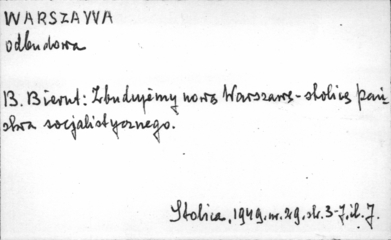 WARSZAWA
odbudowa
B. Bierut: Zbudujemy nową Warszawę - stolicę pań
stwa socjalistycznego.
Stolica, 1949. nr. 29. str. 3-7, il. 7.